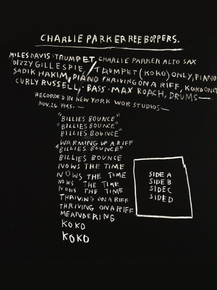 CHARLIE PARKER REEBOPPERS.
MILES DAVIS: TRUMPET, CHARLIE PARKER ALTO SAX
DIZZY GILLESPIE, TRUMPET (KOKO) ONLY, PIANO
SADIK HAKIM, PIANO THRIVING ON A RIFF, KOKO ONLY
CURLY RUSSELL, BASS · MAX ROACH, DRUMS—
RECORDED BY NEW YORK WOR STUDIOS—
NOV. 26 1945.
"BILLIES BOUNCE"
"BILLIES BOUNCE"
BILLIES BOUNCE
"WARMING UP A RIFF
"BILLIES BOUNCE"
BILLIES BOUNCE
NOWS THE TIME
NOWS THE TIME
NOWS THE TIME
NOWS THE TIME
THRIVING ON A RIFF
THRIVING ON A RIFF
MEANDERING
KOKO
KOKO
SIDE A
SIDE B
SIDE C
SIDE D